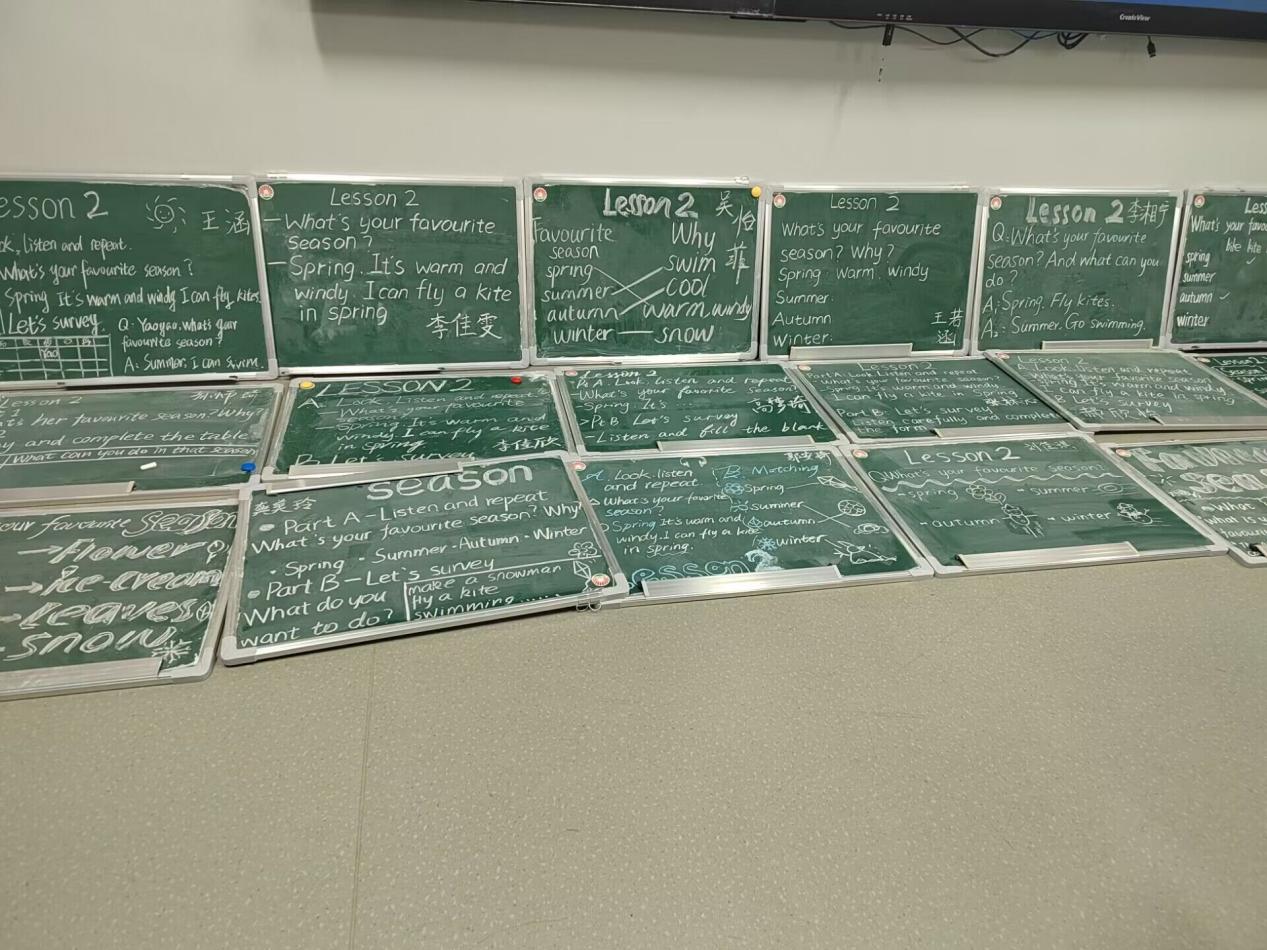 CreateView
Lesson 2
王涵
Look, listen and repeat.
What's your favourite season?
Spring It's warm and windy I can fly kites.
Let's survey.
Q: Yaoyao, what's your
favourite season?
Yao
A: Summer. I can swim
Lesson 2
- What's your favourite
season?
- Spring. It's warm and
windy. I can fly a kite
in spring
李佳雯
Lesson 2
吴怡菲
Favourite
season
Why
spring
swim
summer
cool
autumn
warm, windy
winter
snow
Lesson 2
What's your favourite
season? Why?
Spring: Warm. windy
Summer:
Autumn
Winter:
王若涵
Lesson 2
李相宁
Q: What's your favourite
season? And what can you
do?
A₁: Spring. Fly kites.
A₂: Summer. Go swimming.
What's your
spring
summer
autumn ✓
winter
Lesson 2
her favourite season? Why?
and complete the table
What can you do in that season
LESSON 2
A. Look. Listen and repeat
- What's your favourite
season?
- Spring. It's warm and
windy I can fly a kite
in spring
李佳欣
Lesson 2
Pt A. Look, listen and repeat
- What's your favourite
- Spring It's
>Pt B Let's survey
- Listen and fill the blank
Lesson 2
Part A. Look. listen and repeat
What's your favourite season?
I can fly a kite in spring
Part B Let's survey
Listen carefully and complete
the form
Lesson 2
Look, listen and repeat
I can fly a kite in spring
B Let's survey
your favourite season
→flower
→ice-cream
leaves
snow
season
Part A-Listen and repeat
What's your favourite season? Why
• Spring • Summer • Autumn • Winter
• Part B-Let's survey
What do you
want to do?
make a snowman
fly a kite
swimming......
A. Look, listen
and repeat
What's your favourite
season?
Spring It's warm and
windy. I can fly a kite
in spring.
B. Matching
Spring
summer
autumn
winter
Lesson 2
Lesson 2
What's your favourite season?
· spring
· summer
· autumn
· winter
What
what is